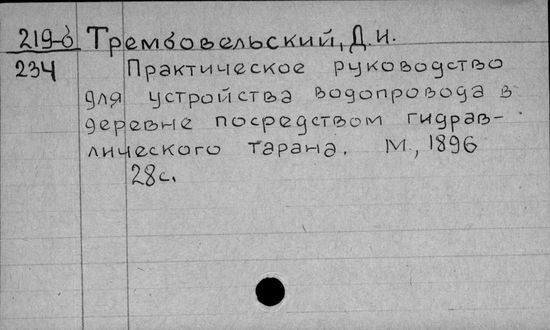 219-б Трембовельский, Д.И.
234 Практическое руководство
для устройства водопровода в
деревне посредством гидрав-
лического тарана. М., 1896
28с.